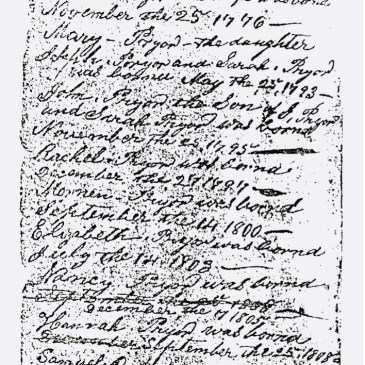 November the 25 1776 —
Mary - Pryor - the daughter
Joseph Pryor and Sarah. Pryor
was bornd May the 25, 1793 -
John. Pryor the Son of J, Pryor
and Sarah Pryor was bornd
November the 22 1795 —
Rachel Pryor was bornd
December the 25 1797 —
Pryor was bornd
September the 14 1800 —
Elizabeth Pryor was bornd
July the 14 1803 —
Nancy Pryor was bornd
December the 17 1805 —
Hannah Pryor was bornd
September the 25 1808
Samuel